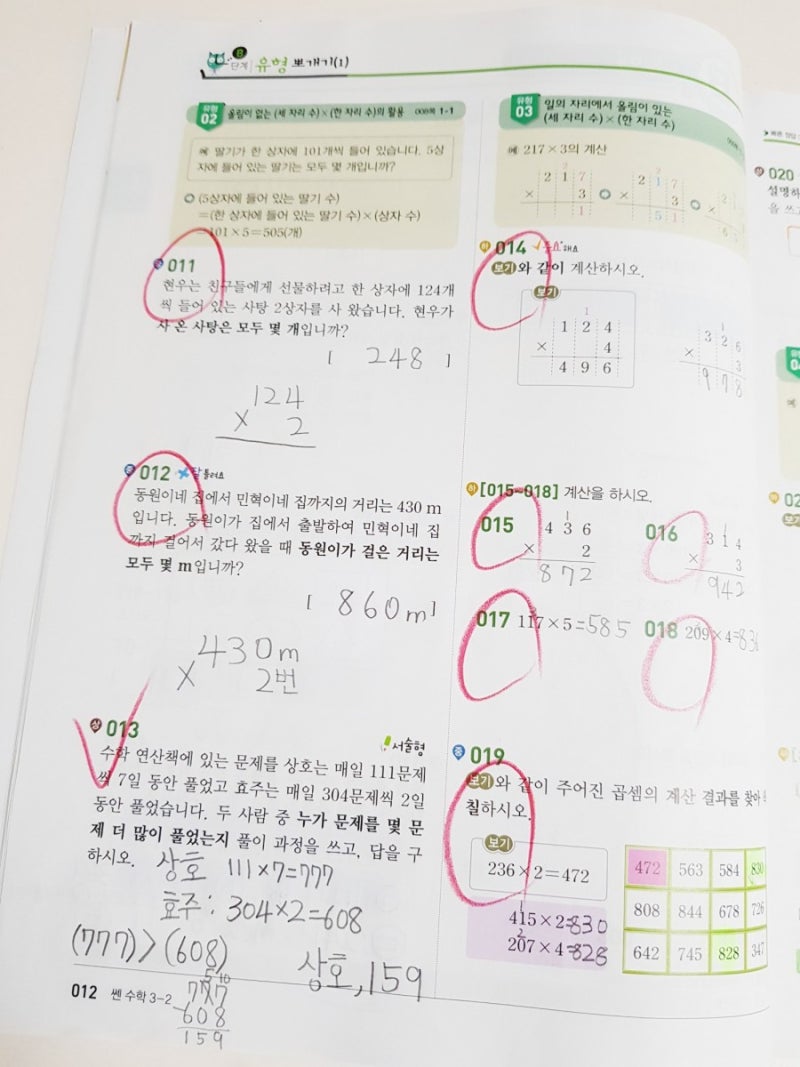 B
단계 유형 뽀개기(1)
유형
02 올림이 없는 (세 자리 수)×(한 자리 수)의 활용 008쪽 1-1
예 딸기가 한 상자에 101개씩 들어 있습니다. 5상
자에 들어 있는 딸기는 모두 몇 개입니까?
(5상자에 들어 있는 딸기 수)
=(한 상자에 들어 있는 딸기 수)×(상자 수)
=101×5=505(개)
중 011
현우는 친구들에게 선물하려고 한 상자에 124개
씩 들어 있는 사탕 2상자를 사 왔습니다. 현우가
사 온 사탕은 모두 몇 개입니까?
[ 248 ]
124
× 2
중 012 잘 틀려요
동원이네 집에서 민혁이네 집까지의 거리는 430 m
입니다. 동원이가 집에서 출발하여 민혁이네 집
까지 걸어서 갔다 왔을 때 동원이가 걸은 거리는
모두 몇 m입니까?
[ 860m ]
430m
× 2번
상 013
서술형
수학 연산책에 있는 문제를 상호는 매일 111문제
씩 7일 동안 풀었고 효주는 매일 304문제씩 2일
동안 풀었습니다. 두 사람 중 누가 문제를 몇 문
제 더 많이 풀었는지 풀이 과정을 쓰고, 답을 구
하시오.
상호 111×7=777
효주: 304×2=608
(777)>(608)
상호, 159
5 10
777
608
159
012 쎈 수학 3-2
유형
03 일의 자리에서 올림이 있는
(세 자리 수)×(한 자리 수)
예 217×3의 계산
2
2 1 7
× 3
1
2
2 1 7
× 3
5 1
하 014 중요해요
보기와 같이 계산하시오.
보기
1
1 2 4
× 4
4 9 6
1
3 2 6
× 3
9 7 8
하 [015~018] 계산을 하시오.
015
1
4 3 6
× 2
872
016
1
3 1 4
× 3
942
017 117×5=585
018 209×4=836
중 019
보기와 같이 주어진 곱셈의 계산 결과를 찾아
칠하시오.
보기
236×2=472
1
415×2=830
2
207×4=828
472 563 584 830
808 844 678 726
642 745 828 347
020
설명하
을 쓰고